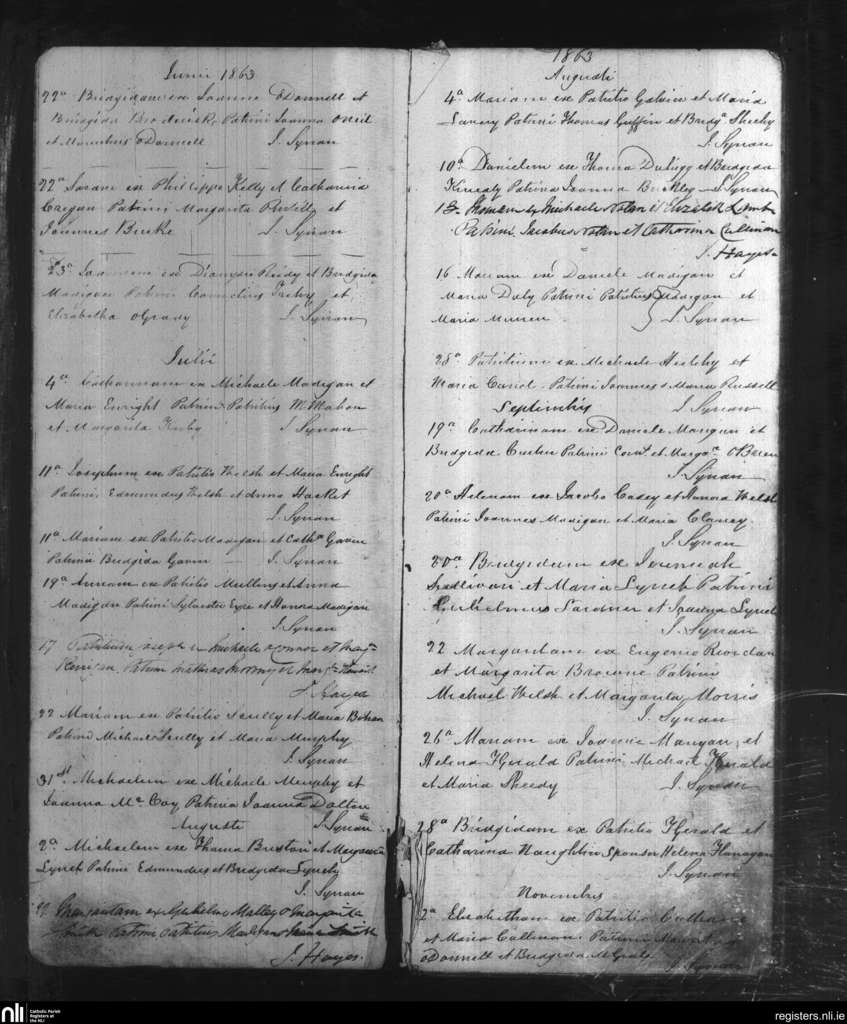 Junii 1863
22a Bridgidam ex Joanne ODonnell et
Bridgida Brodrick, Patrini Joanna Oneil
et ODonnell J. Synan
22a Saram ex Phillippo Kelly et Catharina
Cregan Patrini Margarita Russell et
Joannes Burke J. Synan
23a Joannem ex Dionysio Reidy et Bridgida
Madigan Patrini Cornelius Trehy et
Elizabetha OGrady J. Synan
Julii
4a Catharinam ex Michaele Madigan et
Maria Enright Patrini Patritius McMahon
et Margarita J. Synan
11a Josephum ex Patritio Welsh et Maria Enright
Patrini, Edmundus Welsh et Anna Hacket
J. Synan
11a Mariam ex Patritio Madigan et Catha Gavin
Patrina Bridgida Gavin J. Synan
19a Annam ex Patritio Mullins et Anna
Madigan Patrini Sylvester Eyre et Honora Madigan
J. Synan
17 ex Michaele Connor et
Patrini
J. Hayes
22 Mariam ex Patritio Scully et Maria
Patrini Michael Scully et Maria Murphy
J. Synan
31st Michaelem ex Michaele Murphy et
Joanna Mc Coy Patrina Joanna Dalton
Auguste J. Synan
2a Michaelem ex Thoma Buxton et Margarita
Lynch Patrini Edmundus et Bridgida Lynch
J. Synan
Margaritam ex Gulielmo Malley et Margarita
Smith Patrini Patritius Smith
J. Hayes
1863
Augusti
4a Mariam ex Patritio Galvin et Maria
Patrini Thomas Griffin et Bridga Sheehy
J. Synan
10a Danielem ex Thoma et Bridgida
Kinealy Patrina Joanna Buckley J. Synan
13 Thomam ex Michaele Nolan et Elizabeth Lamb
Patrini Jacobus Nolan et Catharina Cullinan
J. Hayes
16 Mariam ex Daniele Madigan et
Maria Daly Patrini Patritius Madigan et
Maria J. Synan
28a Patritium ex Michaele Sheehy et
Maria Patrini Joannes & Maria Russell
Septembris J. Synan
19a Catharinam ex Daniele Mangan et
Bridgida Patrini Corns et Marga OBrien
J. Synan
20a Helenam ex Jacobo Casey et Honora Welsh
Patrini Joannes Madigan et Maria Clancy
J. Synan
20a Bridgidam ex Jeremiah
Sullivan et Maria Lynch Patrini
Gulielmus Gardner et Lynch
J. Synan
22 Margaritam ex Eugenio Riordan
et Margarita Browne Patrini
Michael Welsh et Margarita Morris
J. Synan
26a Mariam ex Joanne Mangan, et
Helena FGerald Patrini Michael FGerald
et Maria Sheedy J. Synan
28a Bridgidam ex Patritio FGerald et
Catharina Naughtin Sponsor Helena Flanagan
J. Synan
Novembris
2a Elizabetham ex Patritio
et Maria Cullinan. Patrini
ODonnell et Bridgida McGrath
J. Synan
nli
Catholic Parish
Registers at
the NLI
registers.nli.ie